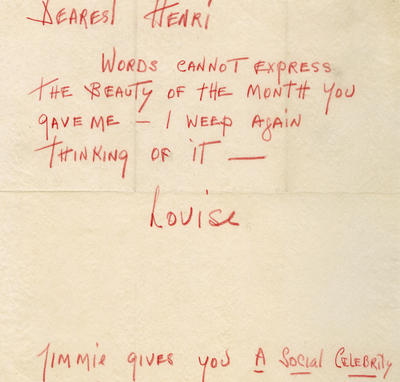 DEAREST HENRI
WORDS CANNOT EXPRESS
THE BEAUTY OF THE MONTH YOU
GAVE ME — I WEEP AGAIN
THINKING OF IT —
Louise
JIMMIE GIVES YOU A SOCIAL CELEBRITY